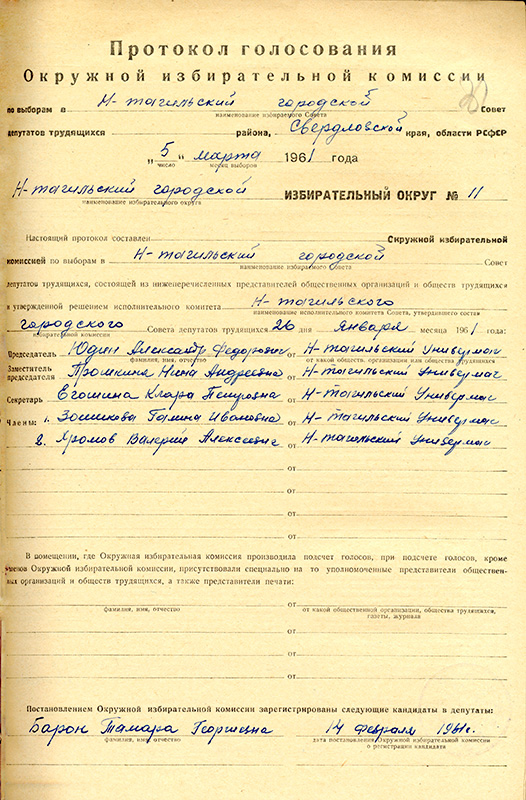 Протокол голосования
Окружной избирательной комиссии
по выборам в Н-тагильский городской Совет
наименование избираемого Совета
депутатов трудящихся района, Свердловской края, области РСФСР
„5" марта 1961 года
число месяц выборов
Н-тагильский городской ИЗБИРАТЕЛЬНЫЙ ОКРУГ № 11
наименование избирательного округа
Настоящий протокол составлен Окружной избирательной
комиссией по выборам в Н-тагильский городской Совет
наименование избираемого Совета
депутатов трудящихся, состоящей из нижеперечисленных представителей общественных организаций и обществ трудящихся
и утвержденной решением исполнительного комитета Н-тагильского
наименование исполнительного комитета Совета, утвердившего состав
городского Совета депутатов трудящихся 26 дня января месяца 1961 года:
избирательной комиссии
Председатель Юдин Александр Федорович от Н-тагильский Универмаг
фамилия, имя, отчество от какой обществ. организации или общества трудящихся
Заместитель
председателя Нина Андреевна от Н-тагильский Универмаг
Секретарь Егошина Клара Петровна от Н-тагильский Универмаг
Члены: 1. Галина Ивановна от Н-тагильский Универмаг
2. Хромов Валерий Алексеевич от Н-тагильский Универмаг
от
от
от
В помещении, где Окружная избирательная комиссия производила подсчет голосов, при подсчете голосов, кроме
членов Окружной избирательной комиссии, присутствовали специально на то уполномоченные представители обществен-
ных организаций и обществ трудящихся, а также представители печати:
от
фамилия, имя, отчество от какой общественной организации, общества трудящихся,
газеты, журнала
от
от
от
Постановлением Окружной избирательной комиссии зарегистрированы следующие кандидаты в депутаты:
Барон Тамара Георгиевна 14 февраля 1961г.
фамилия, имя, отчество дата постановления Окружной избирательной комиссии
о регистрации кандидата